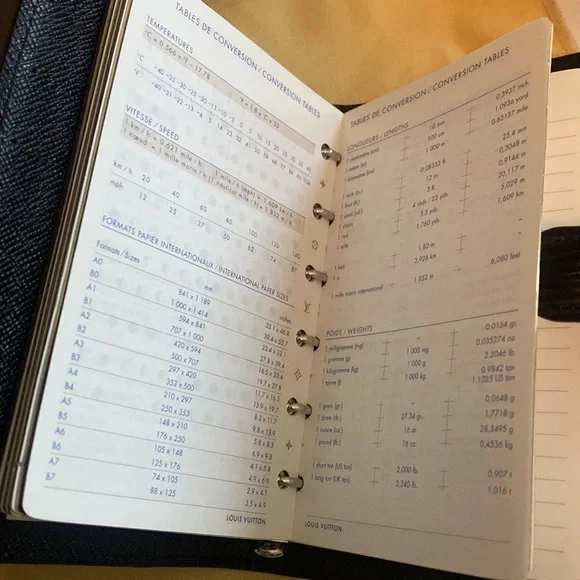 TABLES DE CONVERSION / CONVERSION TABLES
TEMPERATURES
°C = 0.566 x °F - 17.78 °F = 1.8 x °C + 32
°C -40 -35 -30 -25 -20 -15 -10 -5 0 5 10 15 20 25 30 35 40
°F -40 -31 -22 -13 -4 5 14 23 32 41 50 59 68 77 86 95 104
VITESSE / SPEED
1 km / h = 0.621 mile / h 1 mile / h (mph) = 1,609 km / h
1 nœud = 1 mille marin / h (1 nautical mile / h) = 1.852 km / h
km / h 20 40 60 80 100 120 140
mph 12 25 37 50 62 74 87
FORMATS PAPIER INTERNATIONAUX / INTERNATIONAL PAPER SIZES
Formats / Sizes mm inches
A0 841 x 1 189 33.1 x 46.8
B0 1 000 x 1 414 39.4 x 55.7
A1 594 x 841 23.4 x 33.1
B1 707 x 1 000 27.8 x 39.4
A2 420 x 594 16.5 x 23.4
B2 500 x 707 19.7 x 27.8
A3 297 x 420 11.7 x 16.5
B3 353 x 500 13.9 x 19.7
A4 210 x 297 8.2 x 11.7
B4 250 x 353 9.8 x 13.9
A5 148 x 210 5.8 x 8.3
B5 176 x 250 6.9 x 9.8
A6 105 x 148 4.1 x 5.8
B6 125 x 176 4.9 x 6.9
A7 74 x 105 2.9 x 4.1
B7 88 x 125 3.5 x 4.9
LOUIS VUITTON
TABLES DE CONVERSION / CONVERSION TABLES
LONGUEURS / LENGTHS
1 centimètre (cm) 10 mm 0.3937 inch
1 mètre (m) 100 cm 1,0936 yard
1 kilomètre (km) 1 000 m 0.62137 mile
1 inch (in.) 0.08333 ft. 25.4 mm
1 foot (ft.) 12 in 0,3048 m
1 yard (yd.) 3 ft 0,9144 m
1 chain 4 rods / 22 yds 20,117 m
1 rod 5.5 yds 5,029 m
1 mile 1,760 yds 1,609 km
1 ken 1,82 m
1 ri 3,926 km
1 mille marin international 1 852 m 6,080 feet
POIDS / WEIGHTS
1 milligramme (mg) 0.0154 gr.
1 gramme (g) 1 000 mg 0.035274 oz.
1 kilogramme (kg) 1 000 g 2.2046 lb.
1 tonne (t) 1 000 kg 0.9842 ton
1.1023 US ton
1 grain (gr.) 0,0648 g
1 dram (dr.) 27.34 gr. 1,7718 g
1 ounce (oz.) 16 dr. 28,3495 g
1 pound (lb.) 16 oz. 0,4536 kg
1 short ton (US ton) 2,000 lb. 0,907 t
1 long ton (UK ton) 2,240 lb. 1,016 t
LOUIS VUITTON